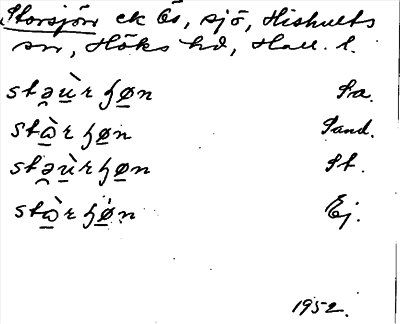 Storsjön ek Ös, sjö, Hishults
sn, Höks hd, Hall. l.
stəùrʃøn Sa.
stɷ̀rʃøn Sand.
stəùrʃøn St.
stɷ̀rʃøn Ej.
1952.